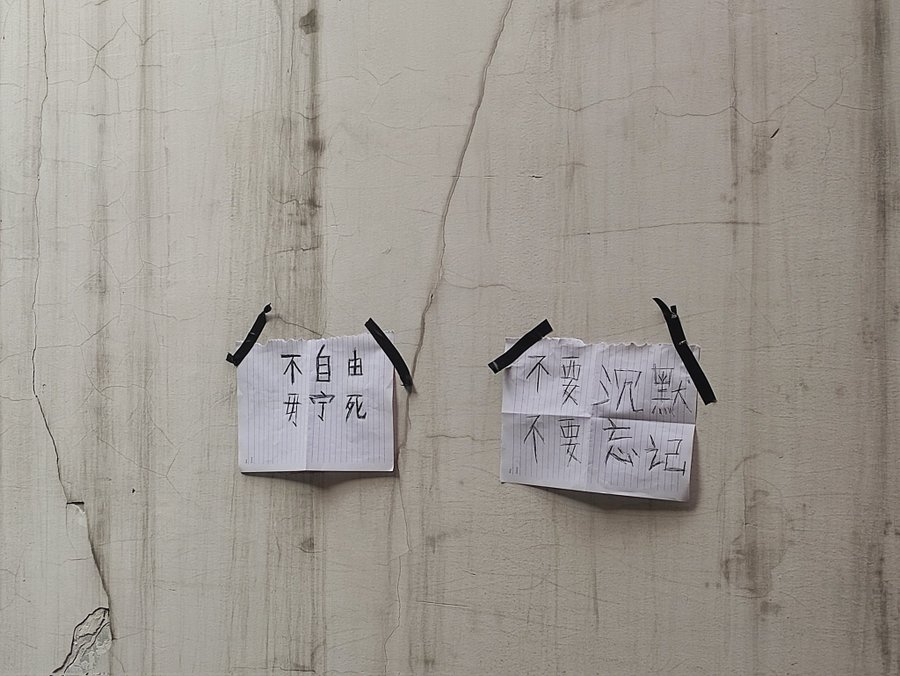 不自由
毋宁死
不要沉默
不要忘记